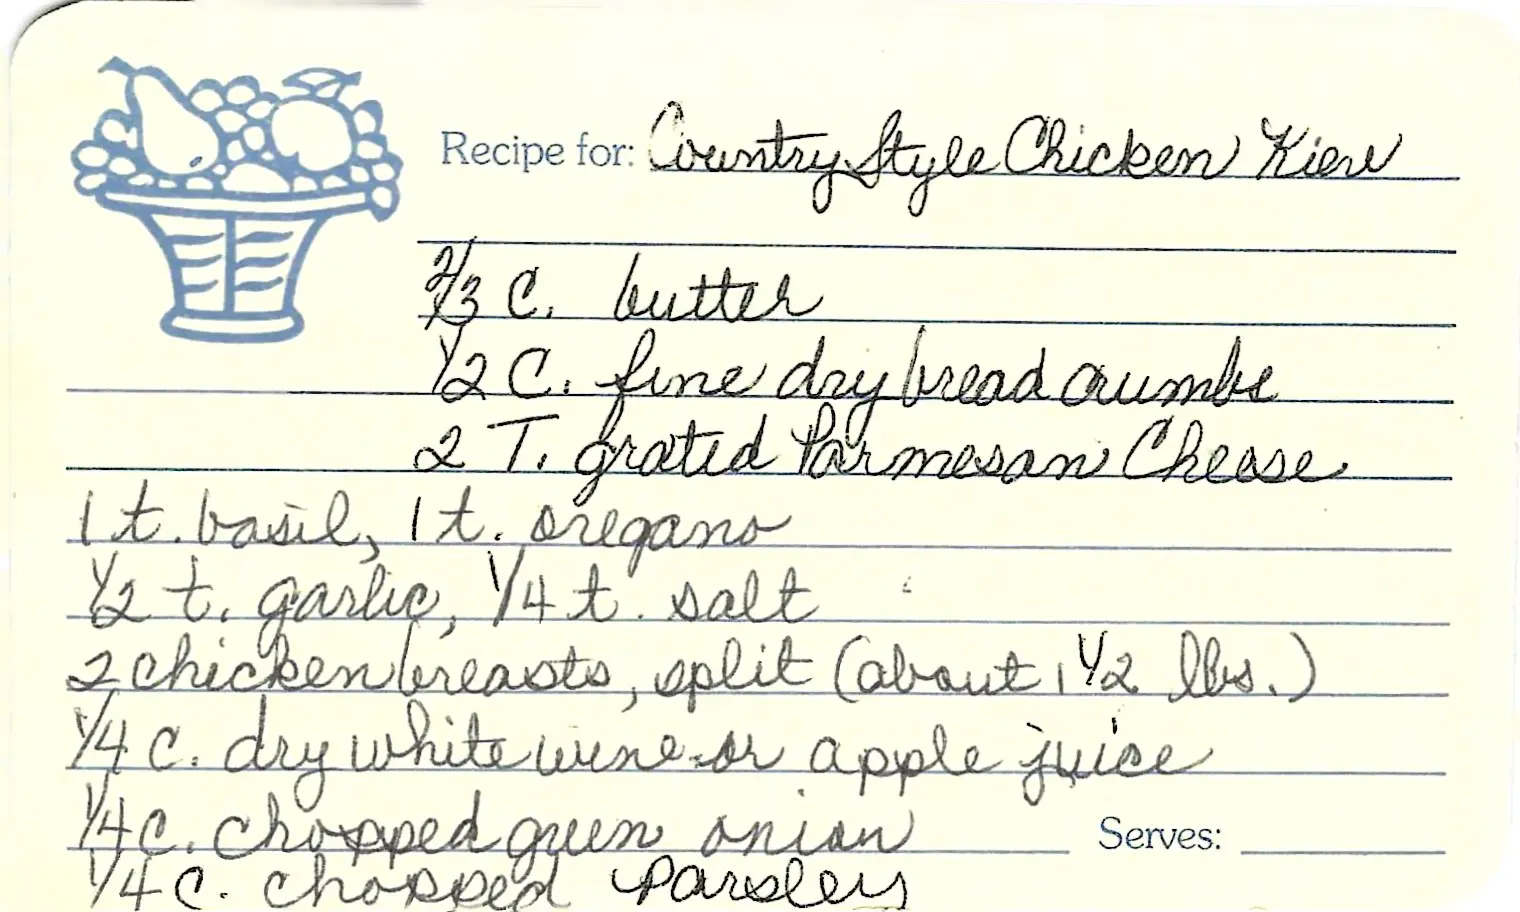 Recipe for: Country Style Chicken Kiev
2/3 C. butter
1/2 C. fine dry bread crumbs
2 T. grated Parmesan Cheese
1 t. basil, 1 t. oregano
1/2 t. garlic, 1/4 t. salt
2 chicken breasts, split (about 1 1/2 lbs.)
1/4 c. dry white wine or apple juice
1/4 c. chopped green onion
Serves:
1/4 c. chopped parsley